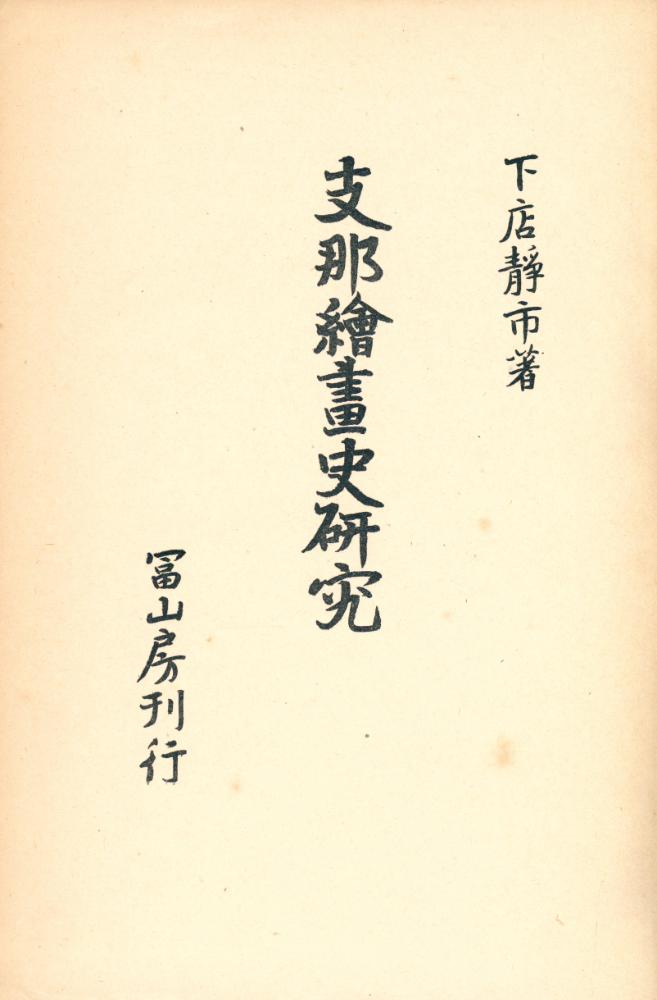 下店靜市著
支那繪畫史硏究
冨山房刊行